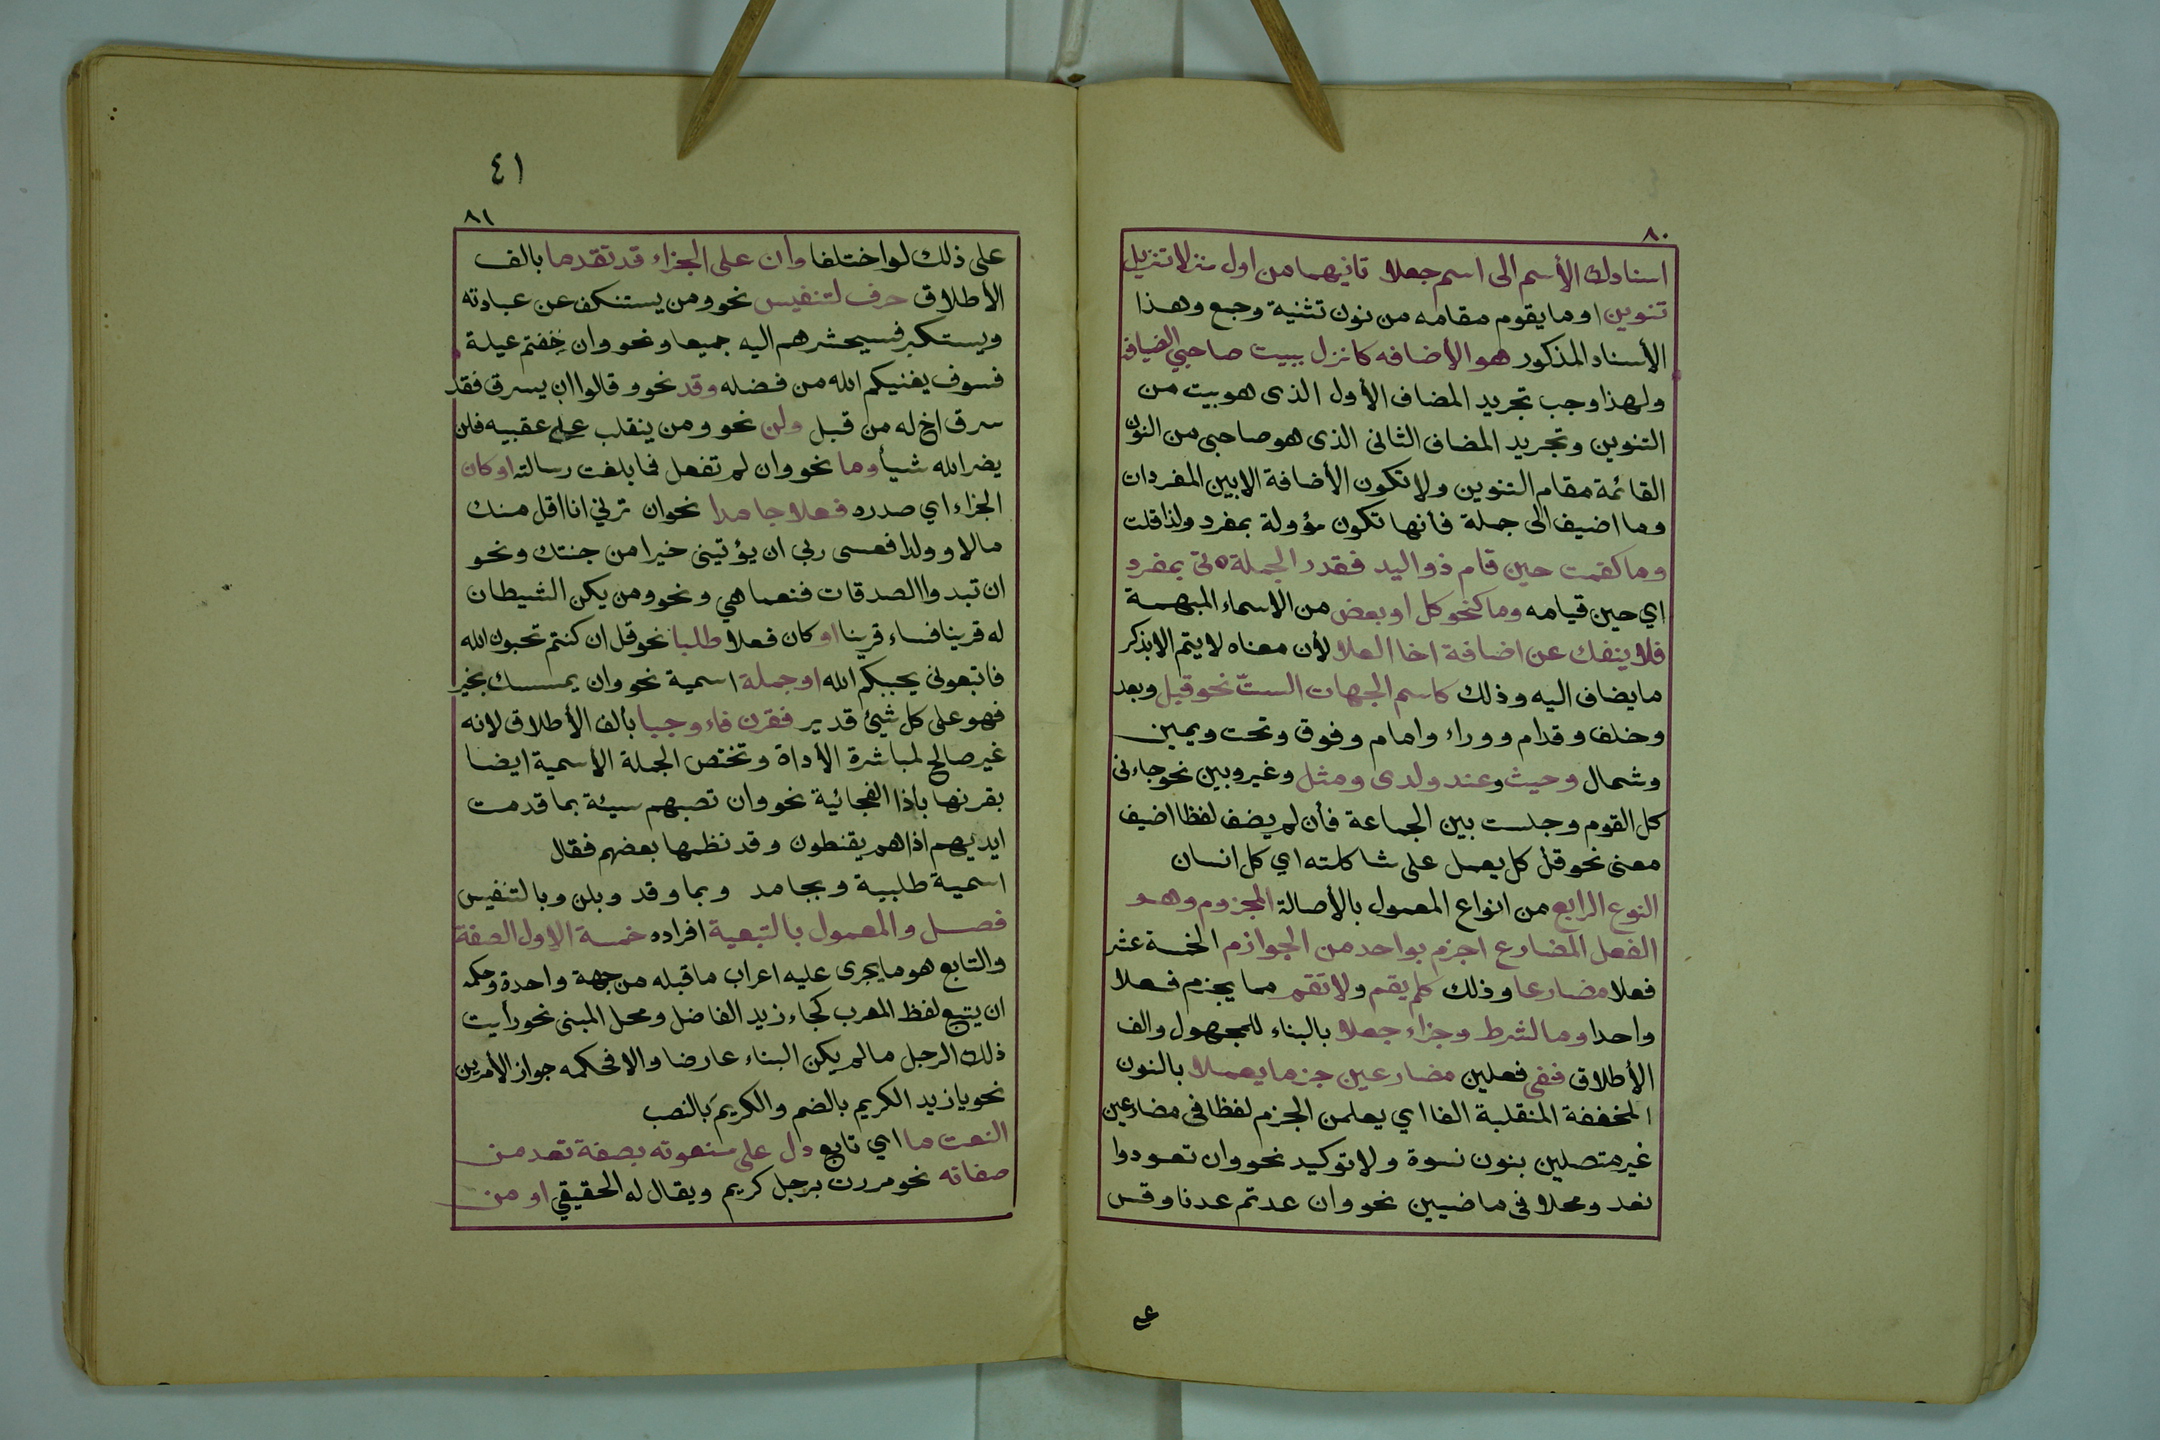 ٨٠
اسنادك الأسم الى اسم جعلا ثانيهما من اول منزلا تنزيل
تنوين او ما يقوم مقامه من نون تثنية وجمع وهذا
الأسناد المذكور هو الأضافه كانزل ببيت صاحبي الضيافه
ولهذا وجب تجريد المضاف الأول الذى هو بيت من
التنوين وتجريد المضاف الثانى الذى هو صاحبي من النون
القائمة مقام التنوين ولا تكون الأضافة الا بين المفردان
وما اضيف الى جملة فأنها تكون مؤولة بمفرد ولذا قلت
وما كقمت حين قام ذو اليد فقدر الجملة بمفرد
اي حين قيامه وما كنحو كل او بعض من الاسماء المبهمة
فلا ينفك عن اضافة اخا العلا لأن معناه لا يتم الا بذكر
ما يضاف اليه وذلك كاسم الجهات الستّ نحو قبل وبعد
وخلف وقدام ووراء وامام وفوق وتحت ويمين
وشمال وحيث وعند ولدى ومثل وغير وبين نحو جاءنى
كل القوم وجلست بين الجماعة فأن لم يضف لفظا اضيف
معنى نحو قل كل يعمل على شاكلته اي كل انسان
النوع الرابع من انواع المعمول بالأصالة المجزوم وهو
الفعل المضارع اجزم بواحد من الجوازم الخمسة عشر
فعلا مضارعا وذلك كلم يقم ولا تقم مما يجزم فعلا
واحدا وما لشرط وجزاء جعلا بالبناء للمجهول والف
الأطلاق ففى فعلين مضارعين جزما يعملا بالنون
المخففة المنقلبة الفا اي يعلمن الجزم لفظا فى مضارعين
غير متصلين بنون نسوة ولا توكيد نحو وان تعودوا
نعد ومحلا فى ماضيين نحو وان عدتم عدنا وقس
٤١
٨١
على ذلك لو اختلفا وان على الجزاء قد تقدما بالف
الأطلاق حرف لتنفيس نحو ومن يستنكف عن عبادته
ويستكبر فسيحشرهم اليه جميعا ونحو وان خفتم عيلة
فسوف يغنيكم الله من فضله وقد نحو وقالوا ان يسرق فقد
سرق اخ له من قبل ولن نحو ومن ينقلب على عقبيه فلن
يضر الله شيأ وما نحو وان لم تفعل فما بلغت رسالته او كان
الجزاء اي صدره فعلا جامدا نحو ان ترني انا اقل منك
مالا وولدا فعسى ربي ان يؤتينى خيرا من جنتك ونحو
ان تبدوا الصدقات فنعما هي ونحو ومن يكن الشيطان
له قرينا فساء قرينا او كان فعلا طلبا نحو قل ان كنتم تحبون الله
فاتبعونى يحببكم الله او جملة اسمية نحو وان يمسسك بخير
فهو على كل شيئ قدير فقرن فاء وجبا بألف الأطلاق لانه
غير صالح لمباشرة الأداة وتختص الجملة الأسمية ايضا
بقرنها بإذا الفجائية نحو وان تصبهم سيئة بما قدمت
ايديهم اذا هم يقنطون وقد نظمها بعضهم فقال
اسمية طلبية وبجامد وبما وقد وبلن وبالتنفيس
فصل والمعمول بالتبعية افراده خمسة الاول الصفة
والتابع هو ما يجرى عليه اعراب ما قبله من جهة واحدة وحكمه
ان يتبع لفظ المعرب كجاء زيد الفاضل ومحل المبنى نحو رأيت
ذلك الرجل ما لم يكن البناء عارضا والا فحكمه جواز الأمرين
نحو يا زيد الكريم بالضم والكريمَ بالنصب
النعت ما اي تابع دل على منعوته بصفة تعد من
صفاته نحو مررت برجل كريم ويقال له الحقيقي او من